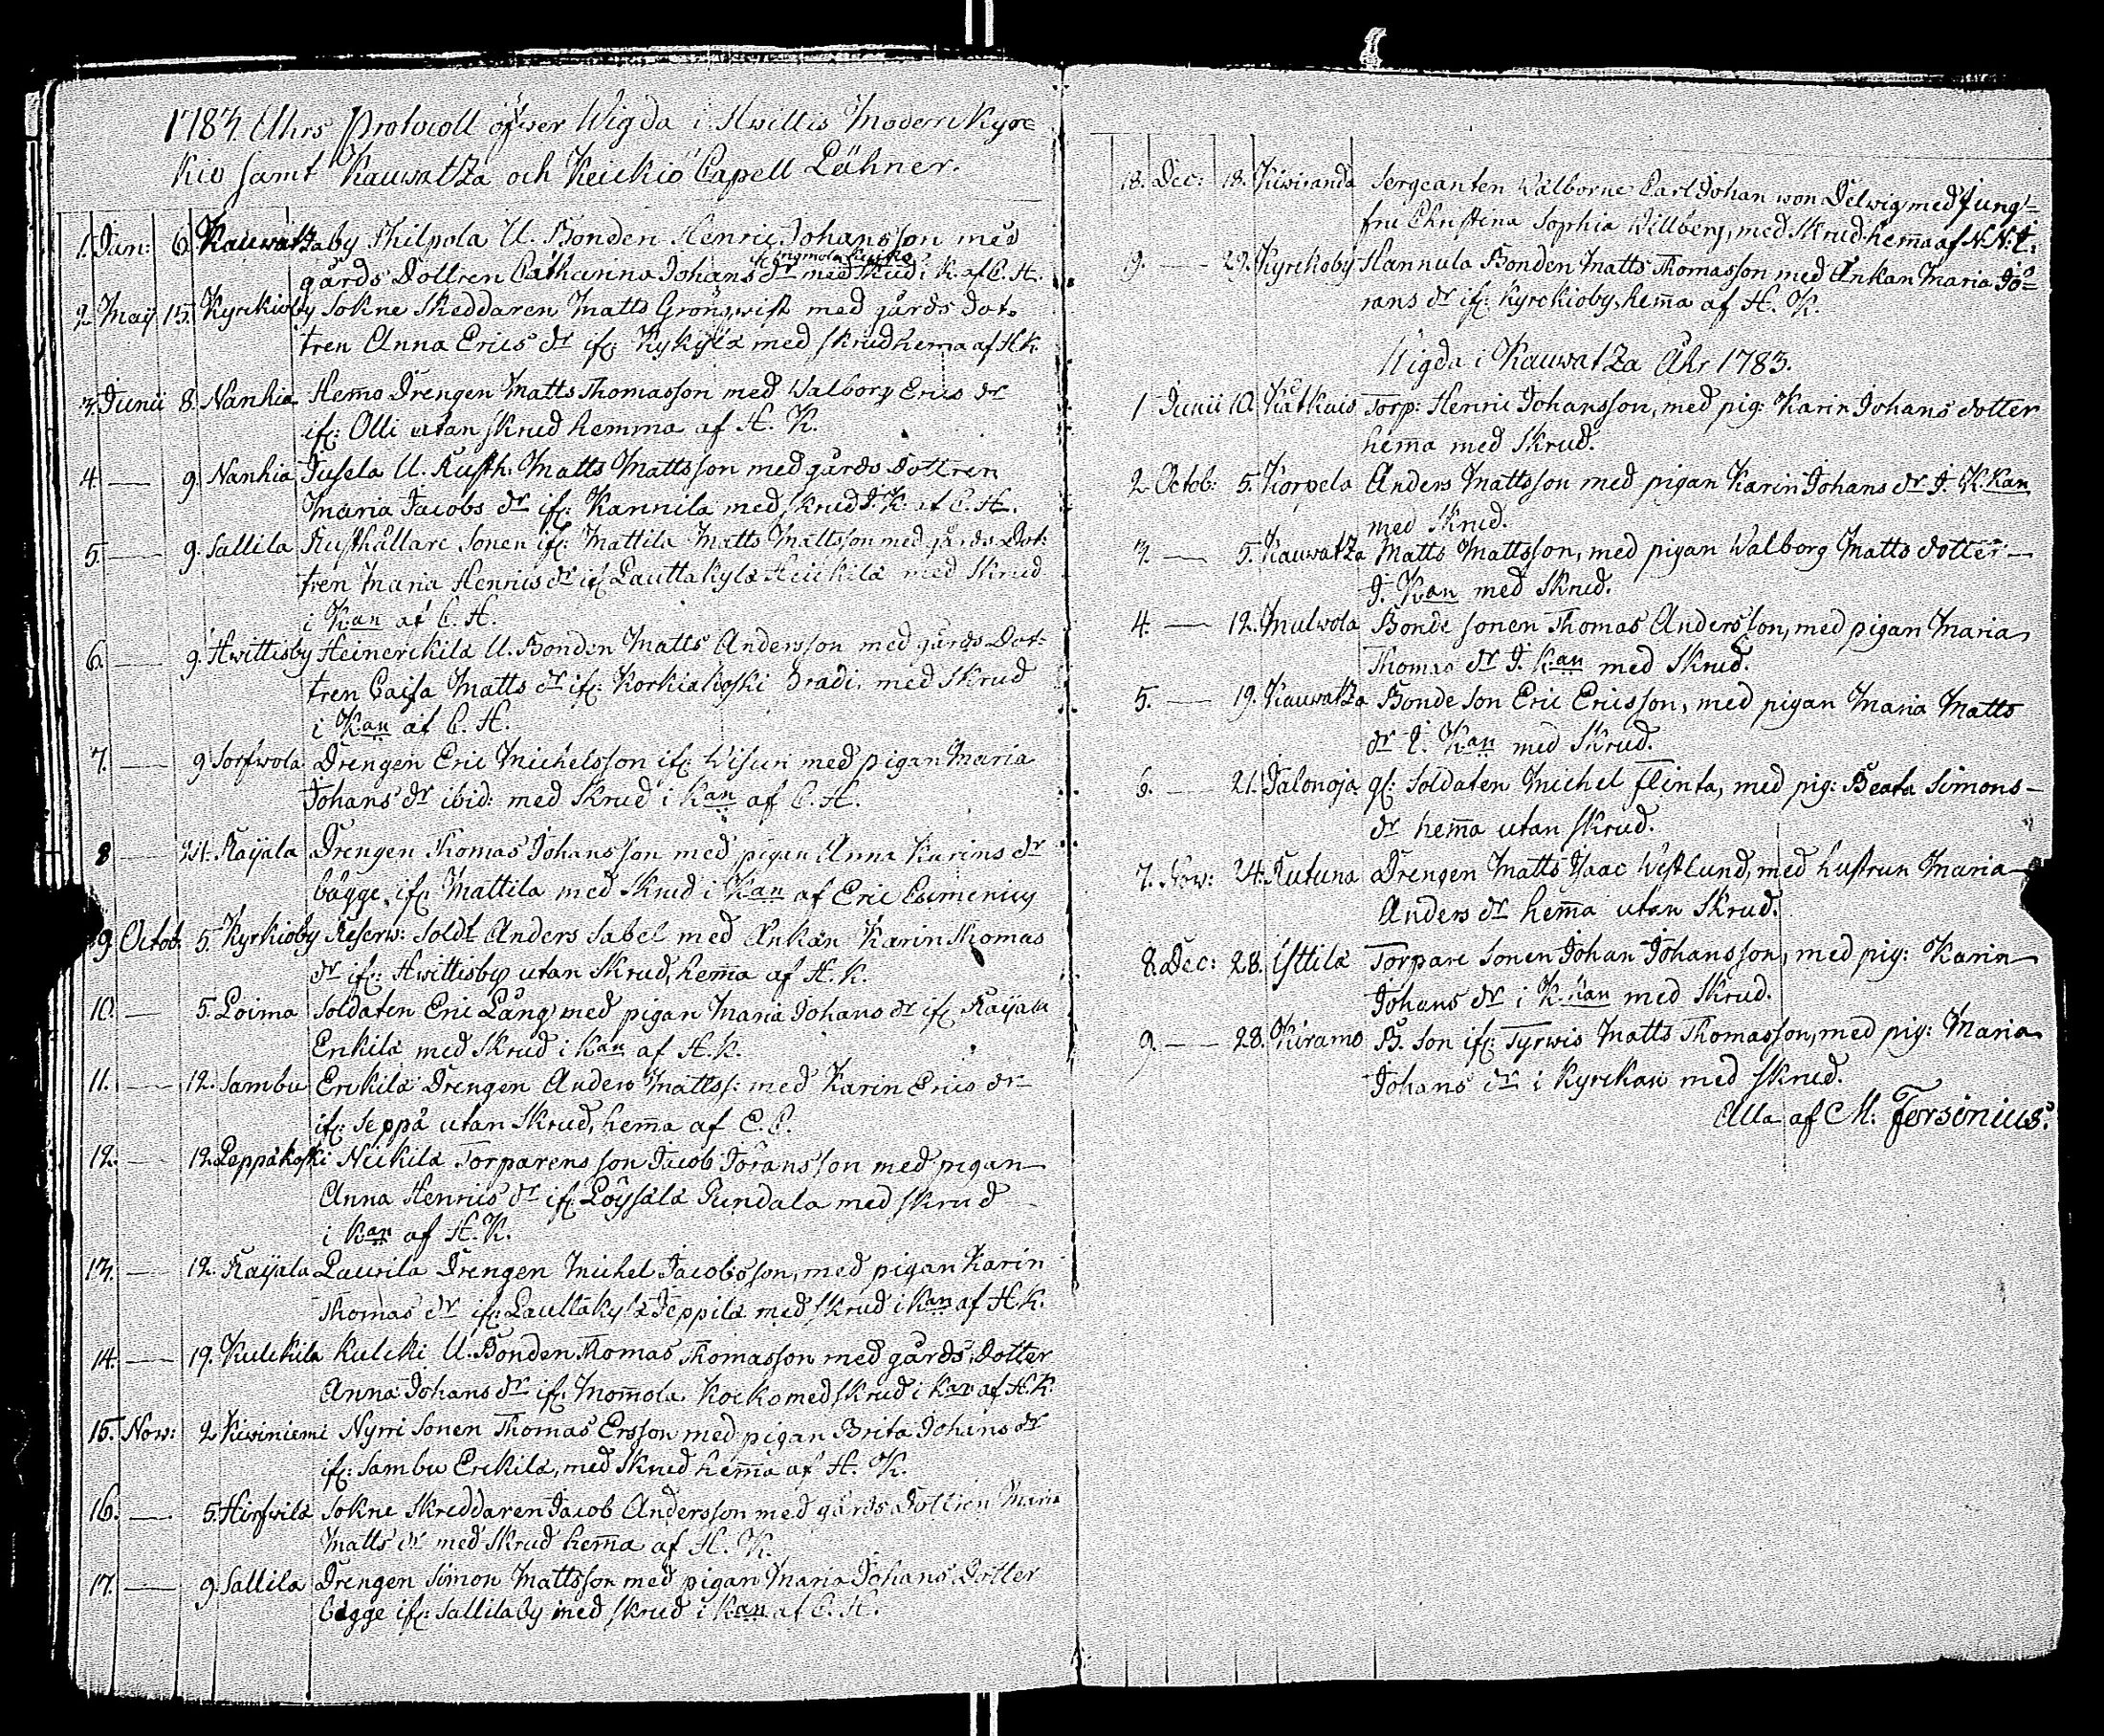 1783. Ahrs Protocoll öfwer Wigda i Hwittis Moderkyr=
kio samt Kauwatza och Keickiö Capell Lähner.
1. Jan: 6. Kauwatzaby Philpola U. Bonden Henric Johansson med
gårds Dottren Catharina Johans Dr med Skrud i K. af C. H.
2. May 15. Kyrckioby Sokne Skeddaren Matts Grönqwist med gårds dot=
tren Anna Erics dr ifr. Kykylä med skrud hema af H K.
3. Junii 8. Nanhia Hemo Drengen Matts Thomasson med Walborg Erics dr
ifr: Olli utan skrud hemma af H. K.
4. — 9. Nanhia Jusela U. Rusth: Matts Mattsson med gårds Dottren
Maria Jacobs dr ifr: Kannila med skrud J. K. af C. H.
5. — 9. Sallila Rusthållare Sonen ifr: Mattila Matts Mattsson med gårds Dot:
tren Maria Henrics dr ifr Lauttakylä Heickilä med Skrud
i Kan af C. H.
6. — 9. Hwittisby Heinerckilä U. Bonden Matts Andersson med gårds Dot:
tren Caisa Matts dr ifr: Korkiakoski Bradi. med Skrud
i Kan af C. H.
7. — 9 Sorfwola Drengen Eric Michelsson ifr: Wisun med pigan Maria
Johans dr ibid: med Skrud i Kan af C. H.
8 — 24. Raijala Drengen Thomas Johansson med pigan Anna Karins dr
bägge, ifr: Mattila med Skrud i Kan af Eric Eumenius
9 Octob: 5. Kyrkioby Reserw: Soldt Anders Sabel med Änkan Karin Thomas
dr ifr: Hwittisby utan Skrud, hemma af H. K.
10. — 5. Loima Soldaten Eric Lång med pigan Maria Johans dr ifr Raijala
Erckilä med Skrud i Kan af H. K.
11. — 12. Sambu Erckilä Drengen Anders Mattss: med Karin Erics dr
ifr: Seppä utan Skrud, hemma af E. E.
12. — 12. Leppäkoski Nickilä Torparens son Jacob Jöransson med pigan
Anna Henrics dr ifr Löysälä Sundala med skrud
i Kan af H. K.
13. — 12. Raijala Laurila Drengen Michel Jacobsson, med pigan Karin
Thomas dr ifr: Lauttakylä Jeppilä med skrud i Kan af H. K.
14. — 19. Kulckila Kulcki U. Bonden Thomas Thomasson med gårds Dotter
Anna Johans dr ifr: Mommola Kocko med skrud i Kan af H. K.
15. Now: 2 Kiwiniemi Nyrri Sonen Thomas Ersson med pigan Brita Johans dr
ifr: Sambu Erckilä, med Skrud hemma af H. K.
16. — 5. Hirfwilä Sokne Skreddaren Jacob Andersson med gårds Dottren Maria
Matts dr med Skrud hemma af H. K.
17. — 9. Sallila Drengen Simon Mattsson med pigan Maria Johans Dotter
bägge ifr: Sallilaby med skrud i Kan af C. H.
18. Dec: 18. Kiwiranda Sergeanten Wälborne Carl Johan won Delwig med Jung=
fru Christina Sophia Willberg, med Skrud hemma af N. N. T.
19. — 29. Kyrckoby Hannula Bonden Matts Thomasson med Änkan Maria Jö=
rans dr ifr: Kyrckioby, hemma af H. K.
Wigda i Kauwatza Åhr 1783.
1 Junii 10. Kätkais Torp: Henric Johansson, med pig: Karin Johans dotter
hemma med Skrud.
2 Octob: 5. Korpela Anders Mattsson med pigan Karin Johans dr J. K.kan
med Skrud.
3. — 5. Kauwatza Matts Mattsson, med pigan Walborg Matts dotter —
J. Kan med Skrud.
4. — 12. Mulwola Bonde sonen Thomas Andersson, med pigan Maria
Thomas dr J. Kan med Skrud.
5. — 19. Kauwatza Bonde Son Eric Ericsson, med pigan Maria Matts
dr i. Kan med Skrud.
6. — 21. Jalonoja gl: Soldaten Michel Flinta, med pig: Beata Simons —
dr hemma utan skrud.
7. Now: 24. Rutuna Drengen Matts Isaac Westlund, med hustrun Maria
Anders dr hemma utan Skrud.
8. Dec: 28. Isttilä Torpare Sonen Johan Johansson, med pig: Karin
Johans dr i K.kan med Skrud.
9. — 28. Kiramo B. Son ifr: Tyrwis Matts Thomasson, med pig: Maria
Johans dr i Kyrckan med skrud.
Alla af M. Forsenius.